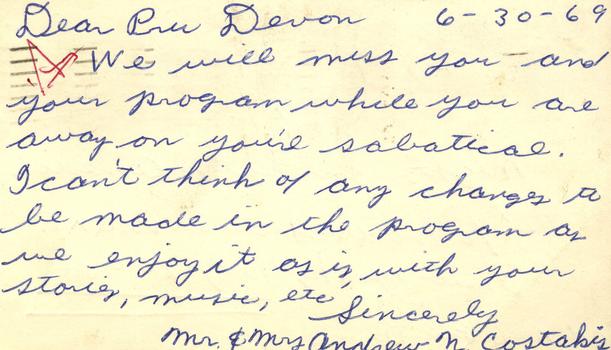 Dear Pru Devon 6-30-69
We will miss you and
your program while you are
away on you're sabatical.
I can't think of any changes to
be made in the program as
we enjoy it as is, with your
stories, music, etc
Sincerely
Mr. & Mrs Andrew N. Costakis